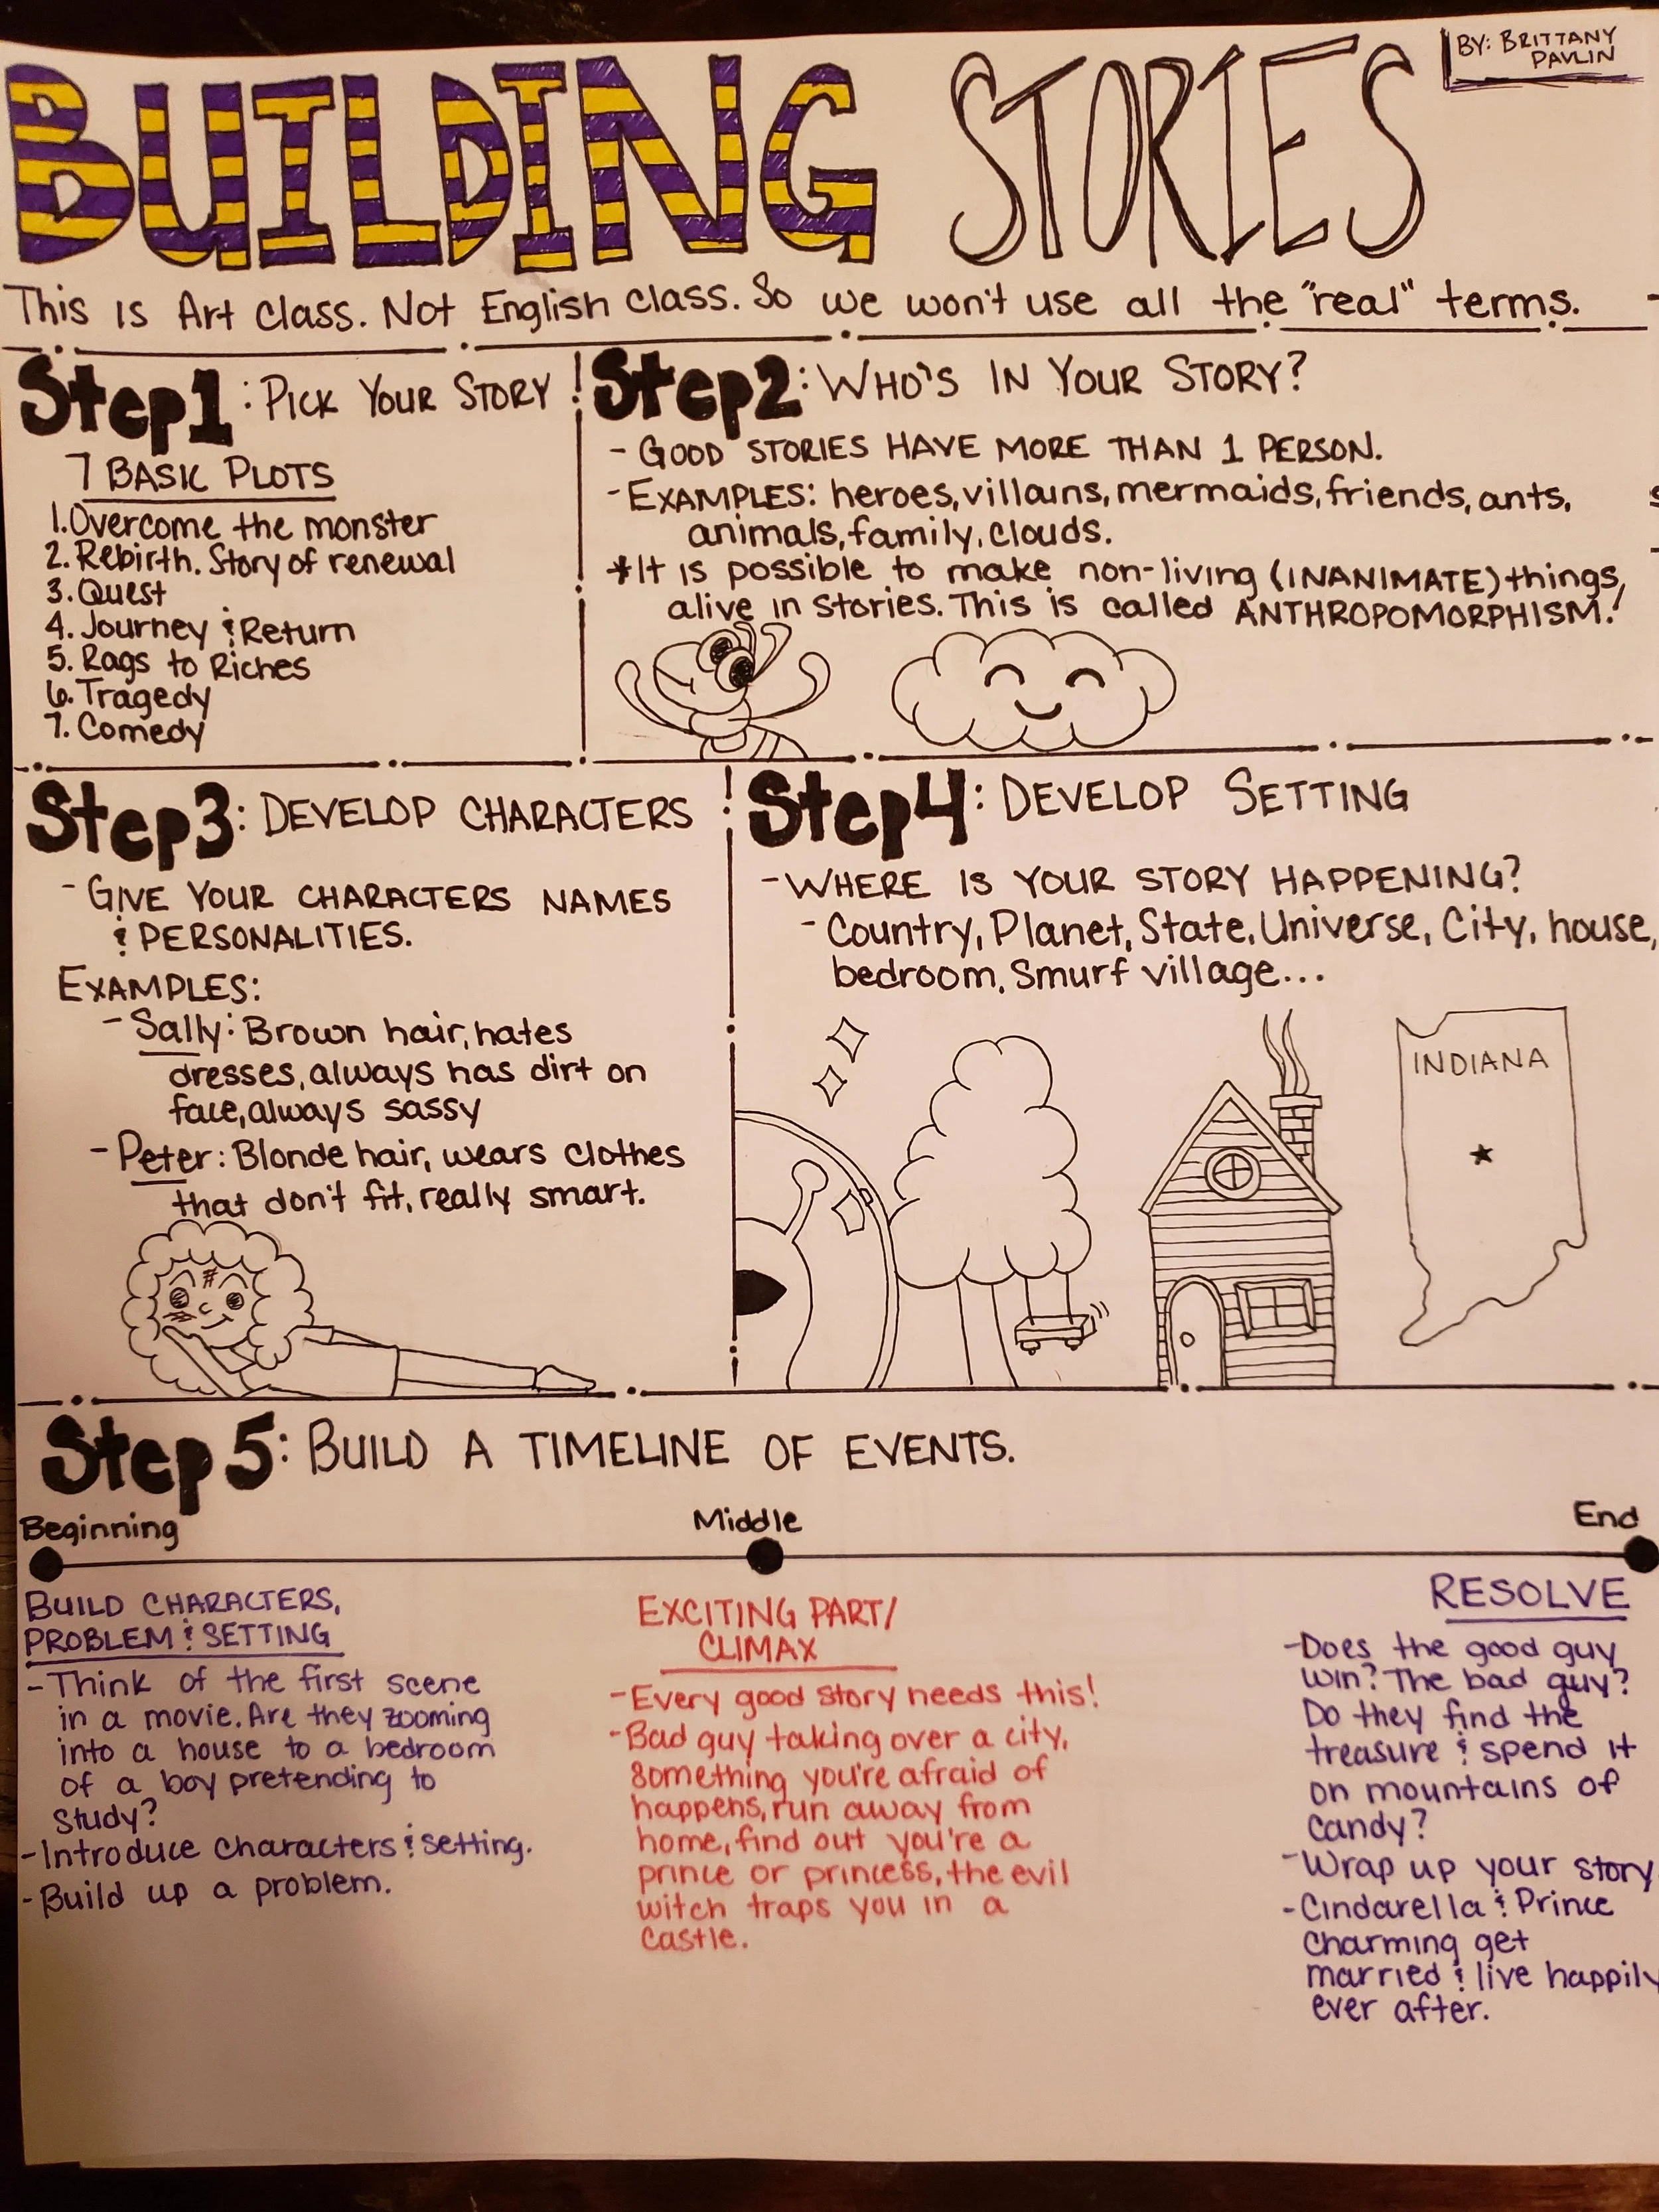 BUILDING STORIES
BY: BRITTANY
PAVLIN
This is Art class. Not English class. So we won't use all the "real" terms.
Step1: PICK YOUR STORY
7 BASIC PLOTS
1. Overcome the monster
2. Rebirth. Story of renewal
3. Quest
4. Journey & Return
5. Rags to Riches
6. Tragedy
7. Comedy
Step2: WHO'S IN YOUR STORY?
- GOOD STORIES HAVE MORE THAN 1 PERSON.
- EXAMPLES: heroes, villains, mermaids, friends, ants,
animals, family, clouds.
*It is possible to make non-living (INANIMATE) things,
alive in stories. This is called ANTHROPOMORPHISM!
Step3: DEVELOP CHARACTERS
- GIVE YOUR CHARACTERS NAMES
& PERSONALITIES.
EXAMPLES:
- Sally: Brown hair, hates
dresses, always has dirt on
face, always sassy
- Peter: Blonde hair, wears clothes
that don't fit, really smart.
Step4: DEVELOP SETTING
- WHERE IS YOUR STORY HAPPENING?
- Country, Planet, State, Universe, City, house,
bedroom, Smurf village...
INDIANA
Step 5: BUILD A TIMELINE OF EVENTS.
Beginning
BUILD CHARACTERS,
PROBLEM & SETTING
- Think of the first scene
in a movie. Are they zooming
into a house to a bedroom
of a boy pretending to
study?
- Introduce characters & setting.
- Build up a problem.
Middle
EXCITING PART/
CLIMAX
- Every good story needs this!
- Bad guy taking over a city,
something you're afraid of
happens, run away from
home, find out you're a
prince or princess, the evil
witch traps you in a
castle.
End
RESOLVE
- Does the good guy
win? The bad guy?
Do they find the
treasure & spend it
on mountains of
candy?
- Wrap up your story
- Cindarella & Prince
Charming get
married & live happily
ever after.